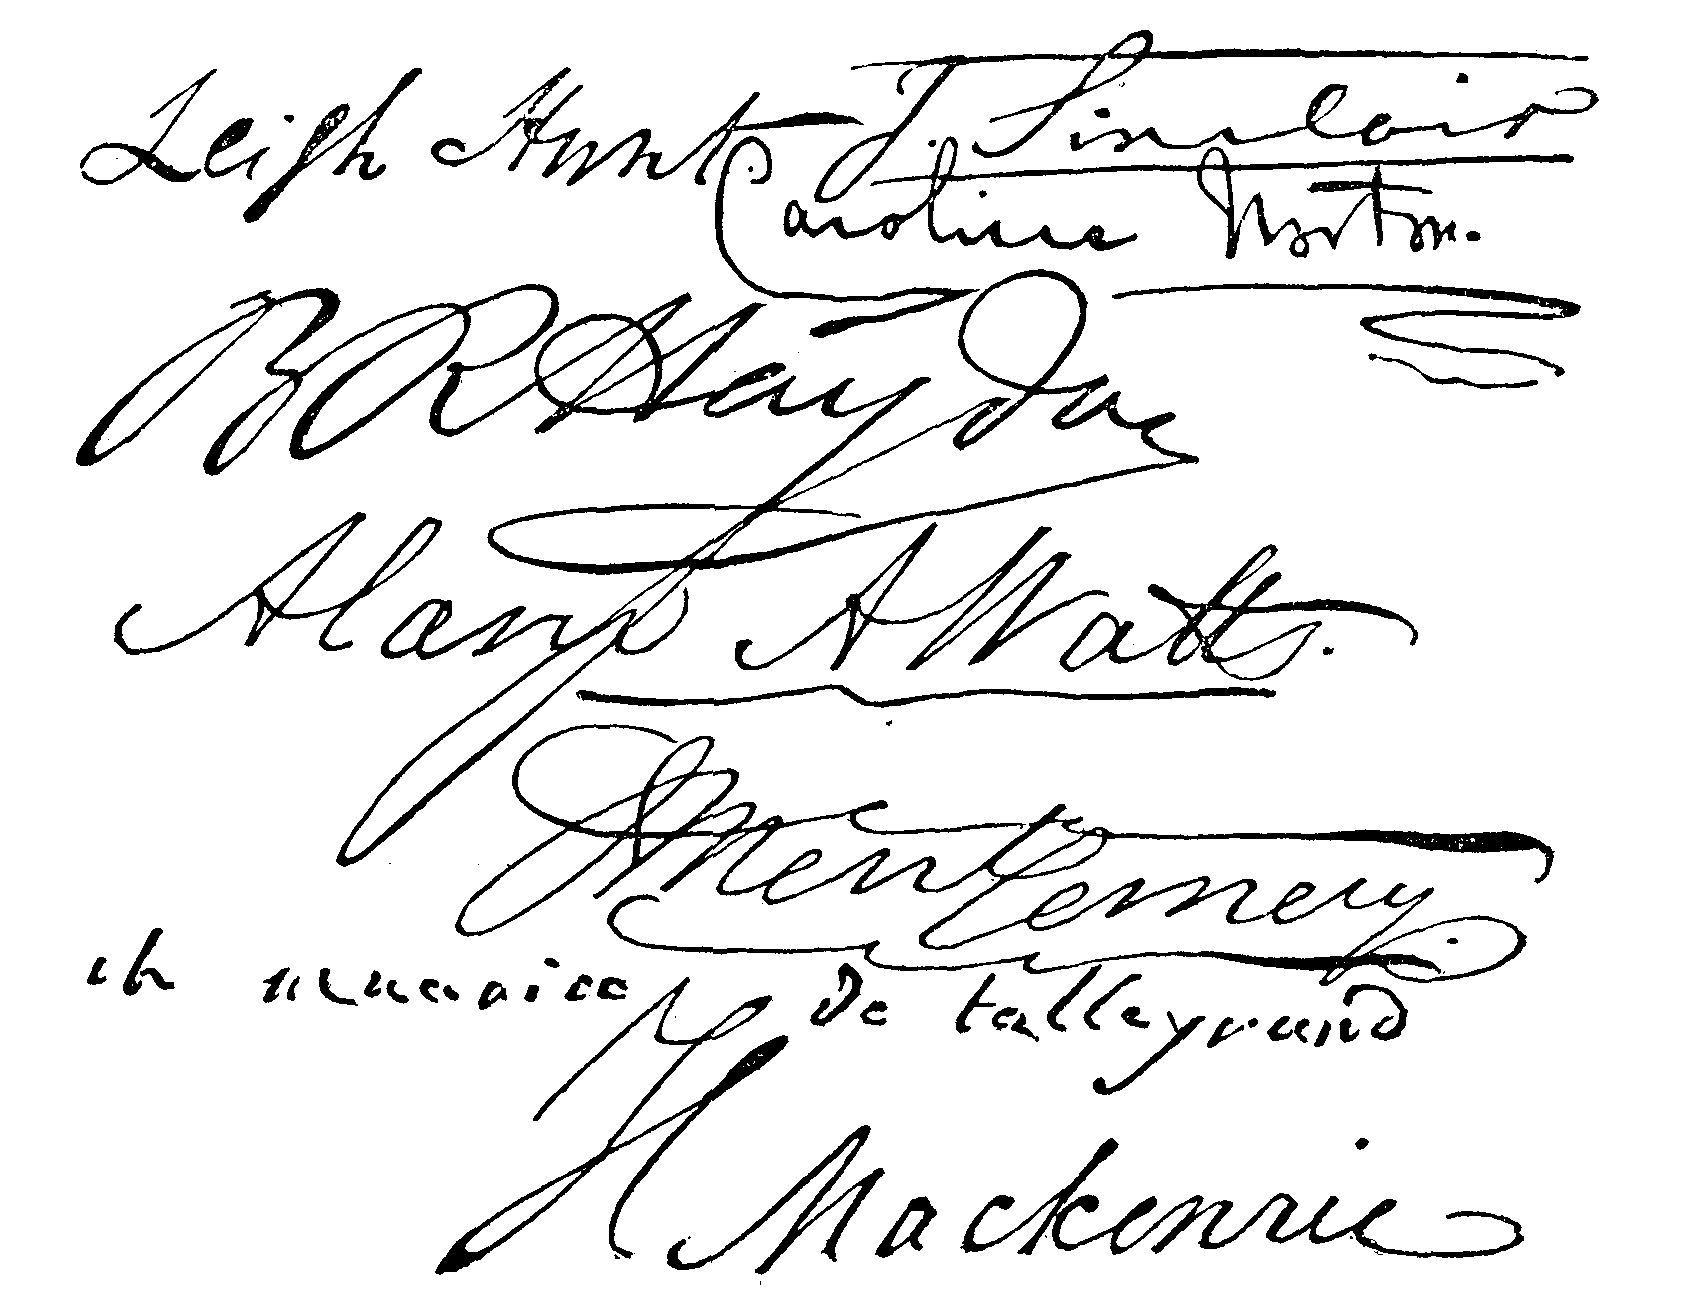 Leigh Hunt
J. Sinclair
Caroline Norton.
B R Haydon
Alaric A Watts.
J Montgomery
ch maurice de talleyrand
H Mackenzie